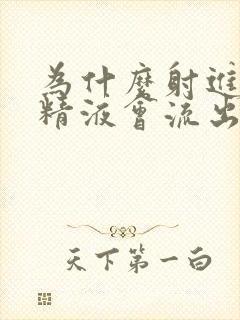 為什麼射進
精液會流出
天下第一白